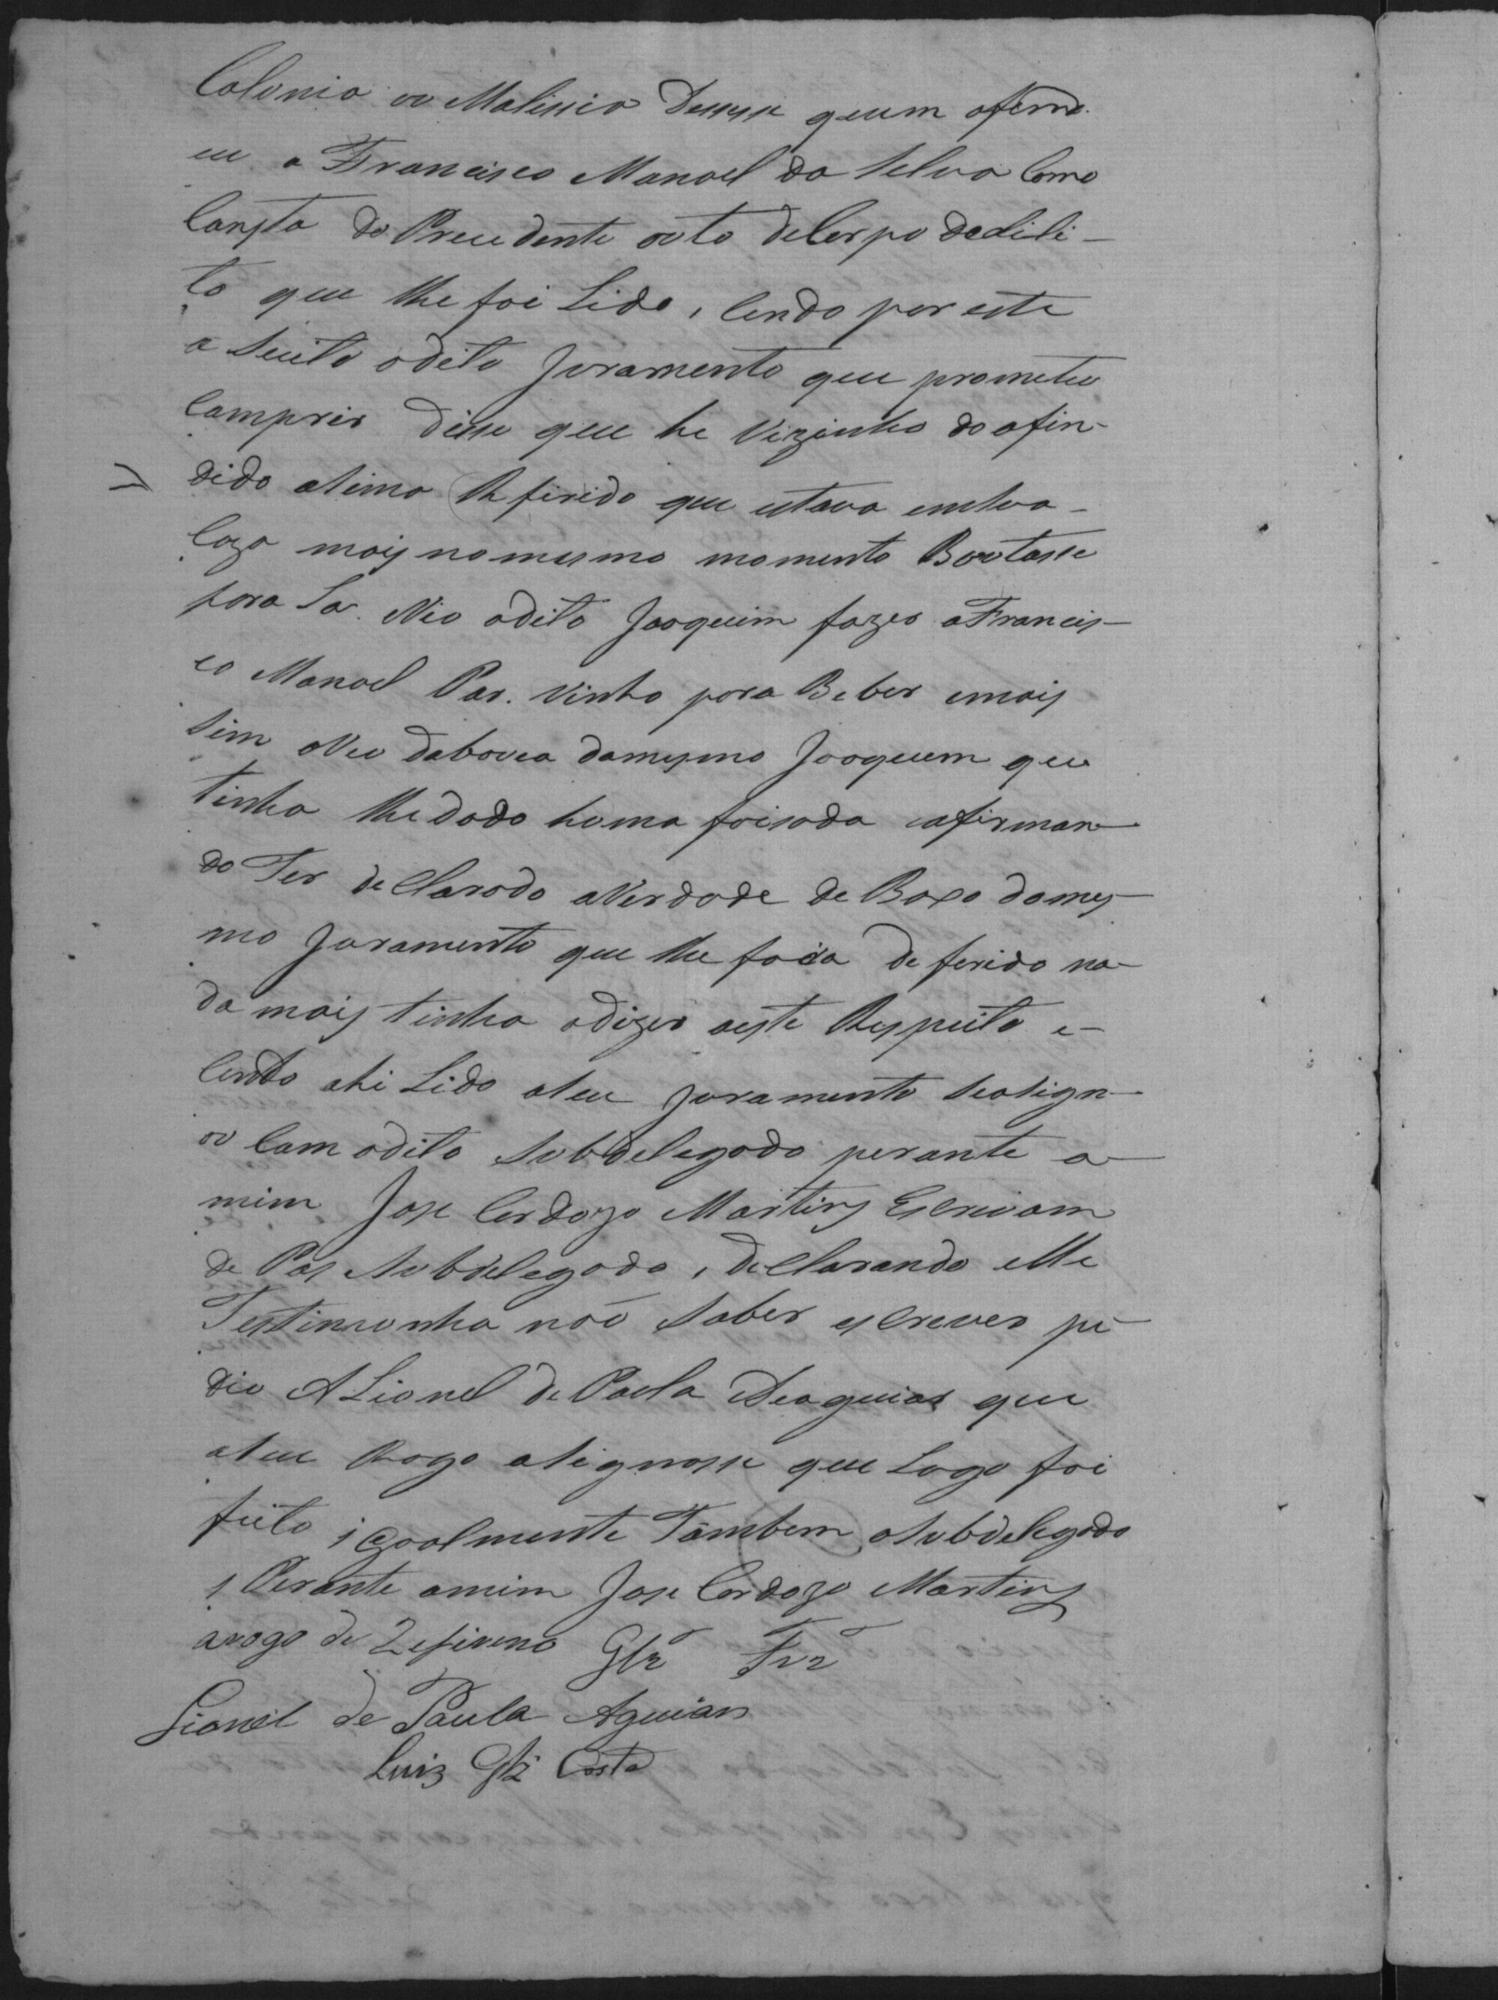 Calunia ou Malissia Dessesse quem ofend.
eu a Francisco Manoel da Selva Como
Consta do Precedente outo deCorpo dedili-
to que lhe foi Lido, Cendo por este
a Seito odito Juramento que prometeu
Comprir Disse que he Vizinho do ofin-
dido asima Referido que estava emsua
Caza mais nomesmo momento Bootasse
fora La. Vio odito Joaquim fazer aFrancis-
co Manoel Par. vinho para Beber emais
Sim oVio daboca domesmo Joaquem que
tinha lhe dado huma foisada eafirman-
do Ter deClarado aVerdade de Baxo domes-
mo Juramento que lhe foi deferido na-
da mais tinha adizer aeste Respeito e-
Cendo ahi Lido aseu Juramento Seasign-
ou Com odito Subdelegado perante a
mim Jose Cardozo Martins Escrivam
de Pas Subdelegado, deClarando elle
Testimunha não Saber esCrever pe-
dio A Lionel de Paula Deaguiar que
aseu Rogo asignasse que Logo foi
feito igoalmente Tambem oSubdelegado
Perante amim Jose Cardozo Martins
arogo de Zefireno Glz Frz
Lionel de Paula Aguiar
Luiz Glz Costa